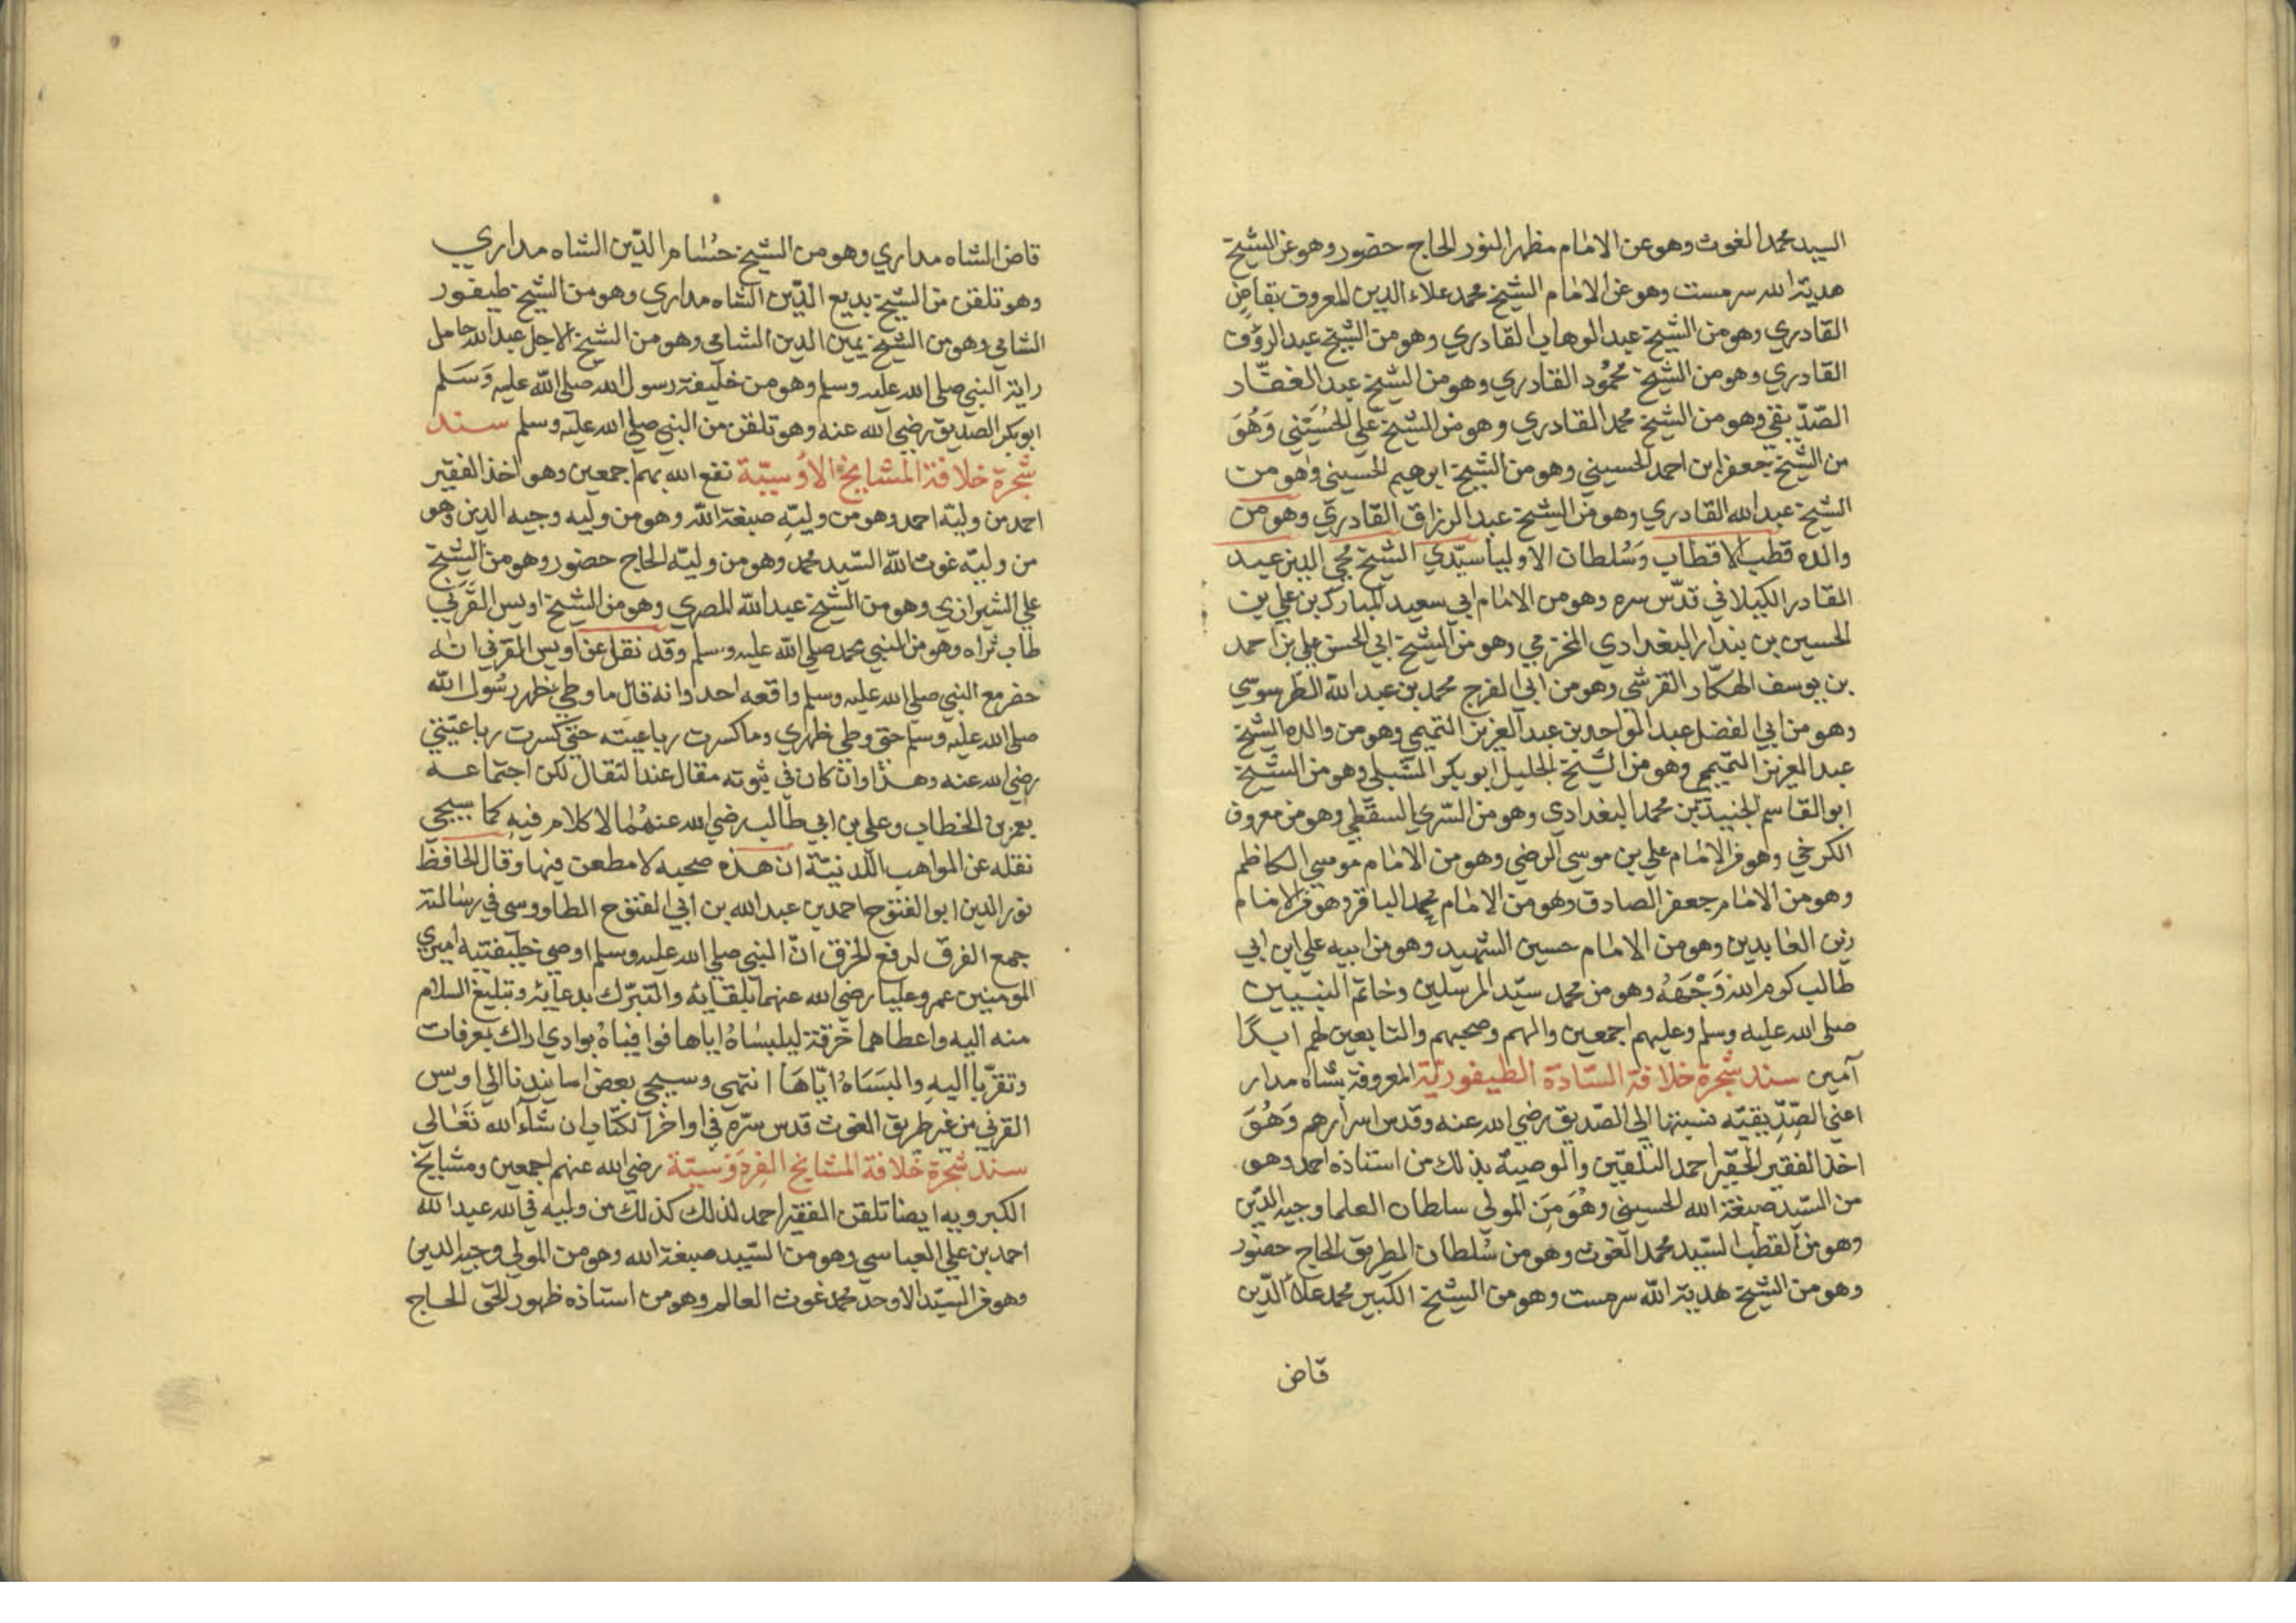 السيد محمد الغوث وهو عن الامام مظهر النور الحاج حضور وهو عن الشيخ
هدية الله سرمست وهو عن الامام الشيخ محمد علاء الدين المعروف بقاض
القادري وهو من الشيخ عبد الوهاب القادري وهو من الشيخ عبد الرؤف
القادري وهو من الشيخ محمُود القادري وهو من الشيخ عبد الغفّار
الصّدّيقي وهو من الشيخ محمد القادري وهو من الشيخ علي الحُسَيْني وَهُوَ
من الشيخ جعفر ابن احمد الحسيني وهو من الشيخ ابرهيم الحسيني وهو من
الشيخ عبد الله القادري وهو من الشيخ عبد الرزاق القادري وهو من
والده قطب الاقطاب وَسُلطان الاوليا سيّدي الشيخ محيي الدين عبد
القادر الكيلاني قدّس سره وهو من الامام ابي سعيد المبارك بن علي بن
الحسين بن بندار البغدادي المخزومي وهو من الشيخ ابي الحسن علي بن احمد
بن يوسف الهكّار القرشي وهو من ابي الفرج محمد بن عبد الله الطرسوسي
وهو من ابي الفضل عبد الواحد بن عبد العزيز التميمي وهو من والده الشيخ
عبد العزيز التميمي وهو من الشيخ الجليل ابو بكر الشبلي وهو من الشيخ
ابو القاسم الجنيد بن محمد البغدادي وهو من السّري السقطي وهو من معروف
الكرخي وهو من الامام علي بن موسى الرضي وهو من الامام موسى الكاظم
وهو من الامام جعفر الصادق وهو من الامام محمد الباقر وهو من الامام
زين العابدين وهو من الامام حسين الشهيد وهو من ابيه علي ابن ابي
طالب كرم الله وَجْهَهُ وهو من محمد سيّد المرسلين وخاتم النبيين
صلى الله عليه وسلم وعليهم اجمعين والهم وصحبهم والتابعين لهم ابدًا
آمين سند شجرة خلافة السّادة الطيفوريّة المعروفة بشاه مدار
اعني الصّدّيقيّه نسبتها الى الصّديق رضي الله عنه وقدس اسرارهم وَهُوَ
اخذ الفقير الحقير احمد التلقين والوصية بذلك من استاذه احمد وهو
من السّيد صبغة الله الحسيني وهُوَ مِنَ المولى سلطان العلما وجيه الدّين
وهو من القطب السّيد محمد الغوث وهو من سُلطان الطريق الحاج حضور
وهو من الشيخ هدية الله سرمست وهو من الشيخ الكبير محمد علاء الدّين
قاض
قاض الشاه مداري وهو من الشيخ حُسَام الدّين الشاه مداري
وهو تلقن من الشيخ بديع الدّين الشاه مداري وهو من الشيخ طيفور
الشامي وهو من الشيخ يمين الدين الشامي وهو من الشيخ الاجل عبد الله حامل
راية النبي صلى الله عليه وسلم وهو من خليفة رسول الله صلى الله عليه وَسَلم
ابو بكر الصديق رضي الله عنه وهو تلقن من النبي صلى الله عليه وسلم سند
شجرة خلافة المشايخ الاُوسيّة نفع الله بهم اجمعين وهو اخذ الفقير
احمد من وليّه احمد وهو من وليّهِ صبغة الله وهو من وليه وجيه الدين وهو
من وليّه غوث الله السّيد محمد وهو من وليّه الحاج حضور وهو من الشيخ
علي الشيرازي وهو من الشيخ عبد الله المصري وهو من الشيخ اويس القَرَني
طاب ثراه وهو من النبي محمد صلى الله عليه وسلم وقد نقل عن اويس القرني انه
حضر مع النبي صلى الله عليه وسلم واقعه احد وانه قال ما وطي ظهر رسُول الله
صلى الله عليه وسلم حتى وطي ظهري وما كسرت رباعيته حتى كسرت رباعيّتي
رضي الله عنه وهذا وان كان في ثبوته مقال عند النقال لكن اجتماعه
بعمر بن الخطاب وعلي بن ابي طالب رضي الله عنهُما لا كلام فيه كما سيجي
نقله عن المواهب اللّدنيّة ان هذه صحبه لا مطعن فيها وقال الحافظ
نور الدين ابو الفتوح احمد بن عبد الله بن ابي الفتوح الطاووسي في رسالته
جمع الفرق لرفع الخرق انّ النبي صلى الله عليه وسلم اوصى خليفتيه اميري
المومنين عمر وعليا رضي الله عنهما بلقائه والتبرّك بدعائه وتبليغ السلام
منه اليه واعطاهما خرقة ليلبسَاهُ اياها فوافياهُ بوادي اراك بعرفات
وتقرّبا اليهِ والبسَاهُ ايّاهَا انتهي وسيجي بعض اسانيدنا الى اويس
القرني من غير طريق الغوث قدس سرّه في اواخر الكتاب ان شآء الله تعَالى
سند شجرة خلافة المشايخ الفردَوسيّة رضي الله عنهم اجمعين ومشايخ
الكبرويه ايضا تلقن الفقير احمد لذلك كذلك من وليه في الله عبد الله
احمد بن علي العباسي وهو من السّيد صبغة الله وهو من المولى وجيه الدين
وهو من السيّد الاوحد محمد غوث العالم وهو من استاذه ظهور الحق الحاج